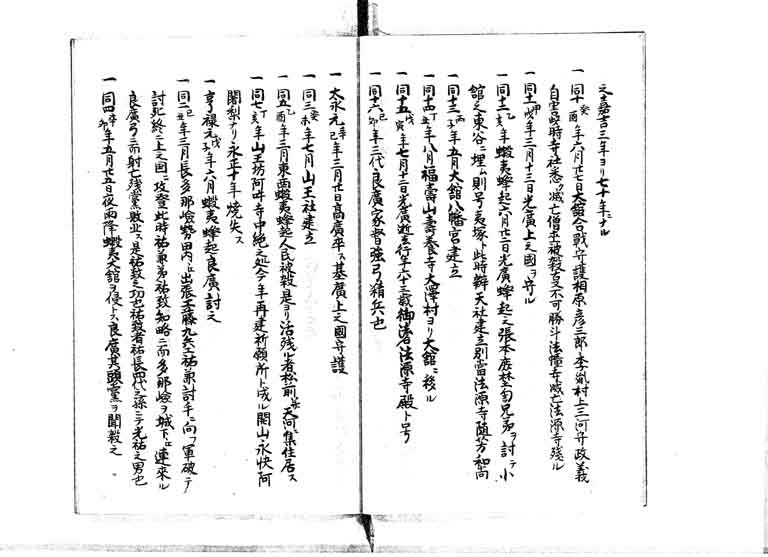 之嘉吉三年ヨリ七十年ニナル
一 同十癸酉年六月廿七日大舘合戰守護相原彦三郎季胤村上三河守政義
自害此時寺社悉ク滅亡僧俗被殺支不可勝斗法幢寺滅亡法源寺残ル
一 同十一甲戌年三月十三日光廣上之國ヨリ守ル
一 同十二乙亥年蝦夷蜂起六月廿二日光廣蜂起之張本庶野訇兄弟ヲ討テ小
舘之東谷ニ埋ム則号夷塚ト此時辨天社建立別當法源寺随芳和尚
一 同十三丙子年五月大舘八幡宮建立
一 同十四丁丑年八月福壽山壽養寺大澤村ヨリ大舘ニ移ル
一 同十五戊寅年七月十二日光廣逝去行年六十三歳御法名法源寺殿ト号
一 同十六己卯年三代良廣家督強弓精兵也
一 大永元辛巳年三月廿日高廣卒ス基廣上之國守護
一 同三癸未年七月山王社建立
一 同五乙酉年三月東西蝦夷蜂起人民被殺是ヨリ活残ル者松前天河ニ集住居ス
一 同七丁亥年山王坊阿吽寺中絶之処今年再建祈願所ト成ル開山永快阿
闍梨ナリ永正十年焼失ス
一 亨禄元戊子年六月蝦夷蜂起良廣討之
一 同二己丑年三月長多那嶮勢田内ニ出張工藤九郎祐兼討手ニ向軍破テ
討死終ニ上之國ニ攻登此時祐兼弟祐致知略ニ而多那嶮ヲ城下ニ連來ル
良廣弓ニ而射亡残黨敗北ス是祐致之功也祐致者祐長四代之孫ニテ光祐之男也
一 同四辛卯年五月廿五日夜雨降蝦夷大舘ヲ侵トス良廣其頭黨ヲ聞殺之